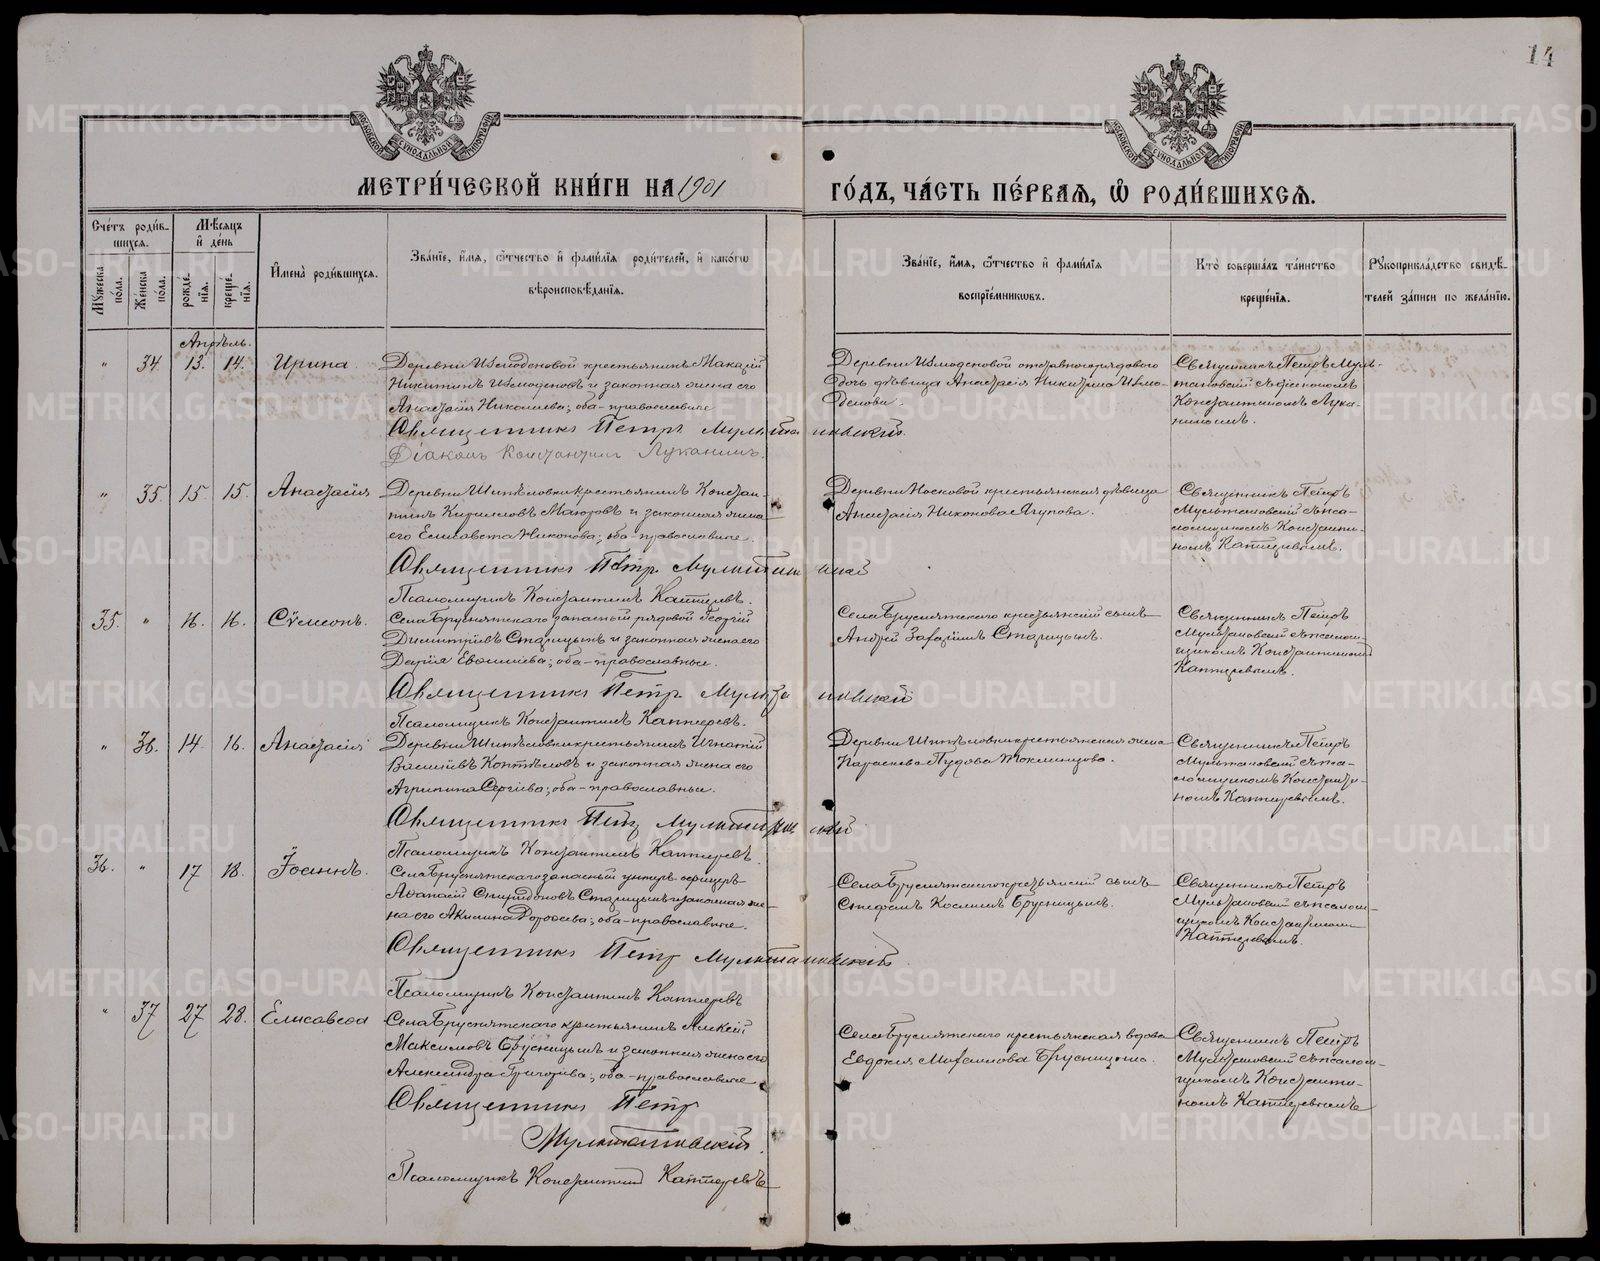 14
МЕТРИ́ЧЕСКОЙ КНИ́ГИ НА 1901 ГО́ДЪ, ЧА́СТЬ ПЕ́РВАЯ, Ѽ РОДИ́ВШИХСЯ.
Сче́тъ роди́в-
шихся.
Мѣ́сяцъ
и҆ де́нь
Му́жеска по́ла.
Же́нска по́ла.
рожде́нїя.
креще́нїя.
И҆мена̀ роди́вшихся.
Зва́нїе, и҆́мя, ѻ҆́тчество и҆ фами́лїя роди́телей, и҆ како́гѡ
вѣроисповѣ́данїя.
Зва́нїе, и҆́мя, ѻ҆́тчество и҆ фами́лїя
воспрїе́мникѡвъ.
Кто̀ соверша́лъ та́инство
креще́нїя.
Рꙋкоприкла́дство свидѣ́-
телей за́писи по жела́нїю.
Апрѣль.
" 34 13. 14. Ирина
Деревни крестьянинъ Макарій
Никитинъ и законная жена его
Анастасія Николаева; оба православные
Священникъ Петръ Мультановскій
Діаконъ Константинъ Луканинъ.
Деревни отставного рядового
дочь дѣвица Анастасія Никитина
Священникъ Петръ Муль-
тановскій съ діакономъ
Константиномъ Лука-
нинымъ.
" 35. 15. 15. Анастасія
Деревни Шипѣловки крестьянинъ Констан-
тинъ Кириловъ и законная жена
его Елисавета Никонова; оба православные.
Священникъ Петръ Мультановскій
Псаломщикъ Константинъ Каптеревъ.
Деревни Носковой крестьянская дѣвица
Анастасія Никонова Ягупова.
Священникъ Петръ
Мультановскій съ пса-
ломщикомъ Константи-
номъ Каптеревымъ.
35. " 16. 16. Сѵмеонъ.
Села Бруснятскаго запасный рядовой Георгій
Димитріевъ Старицынъ и законная жена его
Дарія; оба православные.
Священникъ Петръ Мультановскій
Псаломщикъ Константинъ Каптеревъ.
Села Бруснятскаго крестьянскій сынъ
Андрей Старицынъ.
Священникъ Петръ
Мультановскій съ псалом-
щикомъ Константиномъ
Каптеревымъ.
" 36. 14. 16. Анастасія
Деревни Шипѣловки крестьянинъ Игнатій
Васильевъ и законная жена его
Агрипина Сергіева; оба православные.
Священникъ Петръ Мультановскій
Псаломщикъ Константинъ Каптеревъ.
Деревни Шипѣловки крестьянская жена
Параскева
Священникъ Петръ
Мультановскій съ пса-
ломщикомъ Константи-
номъ Каптеревымъ.
36. " 17 18. Іоаннъ.
Села Бруснятскаго запасный унтеръ-офицеръ
Аѳанасій Спиридоновъ Старицынъ и законная же-
на его Акилина Дороѳеева; оба православные.
Священникъ Петръ Мультановскій
Псаломщикъ Константинъ Каптеревъ
Села Бруснятскаго крестьянскій сынъ
Стефанъ Косминъ Брусницынъ.
Священникъ Петръ
Мультановскій съ псалом-
щикомъ Константиномъ
Каптеревымъ.
" 37 27 28. Елисавета
Села Бруснятскаго крестьянинъ Алексій
Максимовъ Брусницынъ и законная жена его
Александра Григорьева; оба православные
Священникъ Петръ
Мультановскій.
Псаломщикъ Константинъ Каптеревъ
Села Бруснятскаго крестьянская вдова
Евдокія Михаилова Брусницына.
Священникъ Петръ
Мультановскій съ псалом-
щикомъ Константи-
номъ Каптеревымъ
METRIKI.GASO-URAL.RU